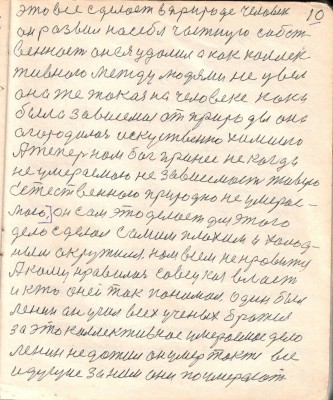 это все сделает в природе человек 10
он развил на себя частную собст-
венност он ея удолил а как коллек-
тивного между людями не увел
она же такая на человеке как
была зависема от природы она
огородилась искуственно химиею
А теперь нам бог принес некогда
не умераемою не зависемост живую
естественного природно не умерае-
мого, он сам это делает для этого
дело сделал самим плохим и холод-
ным окружил нам всем не нровитца
А кому нравилас совецкая власт
и кто о ней так понимал. один был
ленин он учил всех ученых братся
за это коллективное умераемое дело
ленин не дожил он умер также все
идущие за ним они поумерают